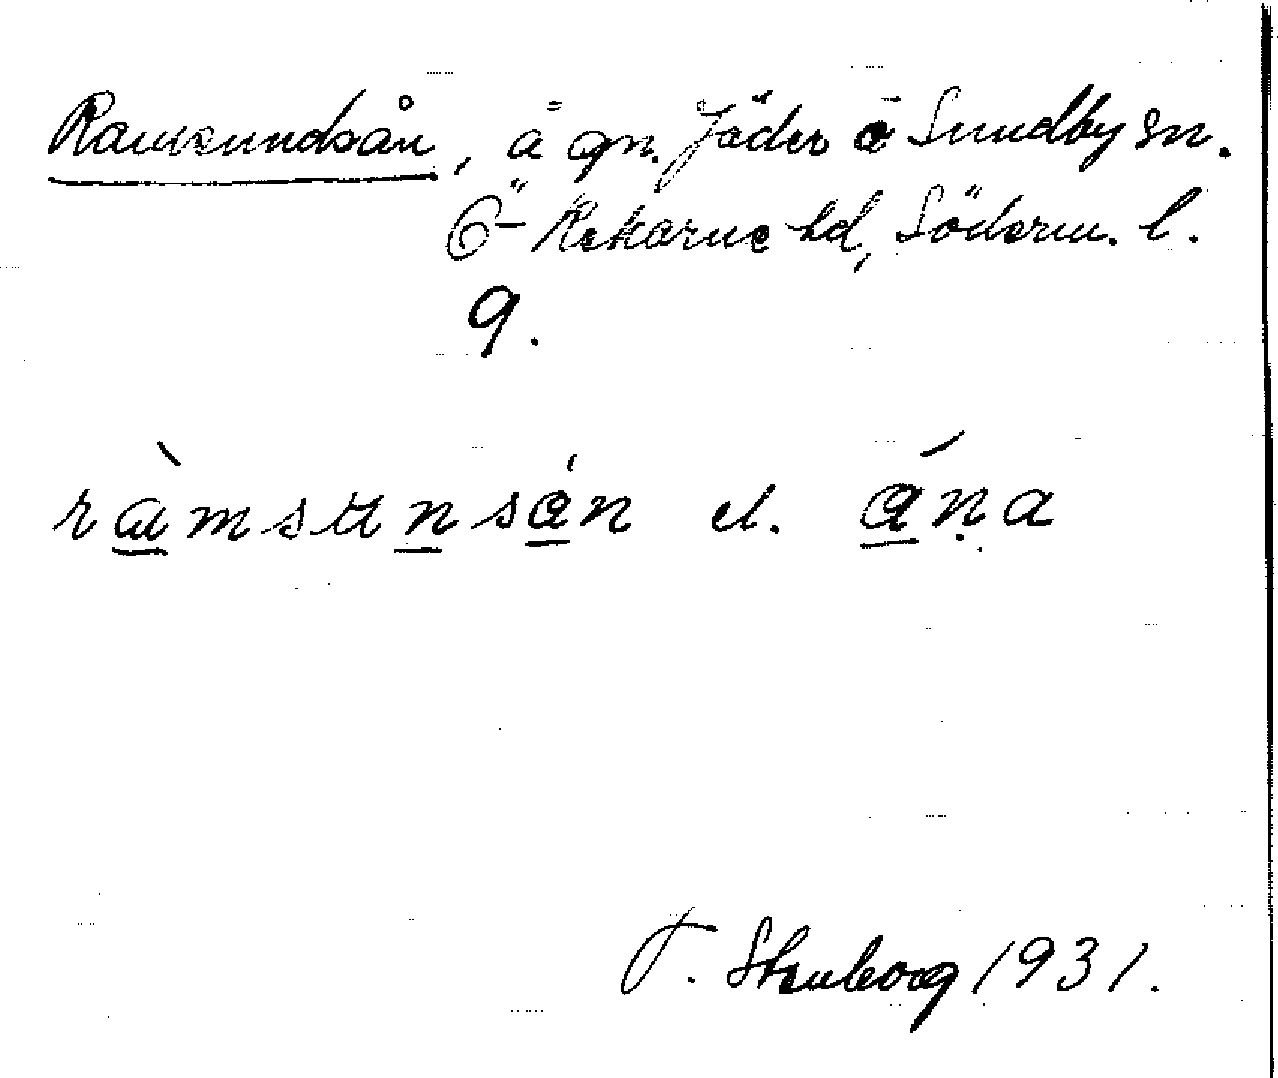 Ramsundsån, å gm. Jäder o Sundby sn.
Ö-Rekarne hd, Söderm. l.
9.
ràmsunsån el. åṇa
T. Stenborg 1931.